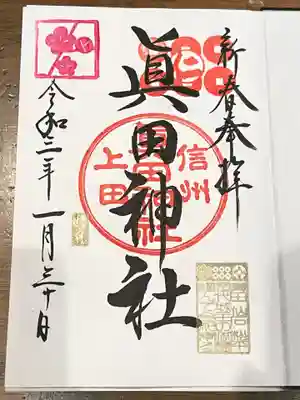 新春奉拝
眞田神社
信州
上田
眞田神社
令和 年一月三十日